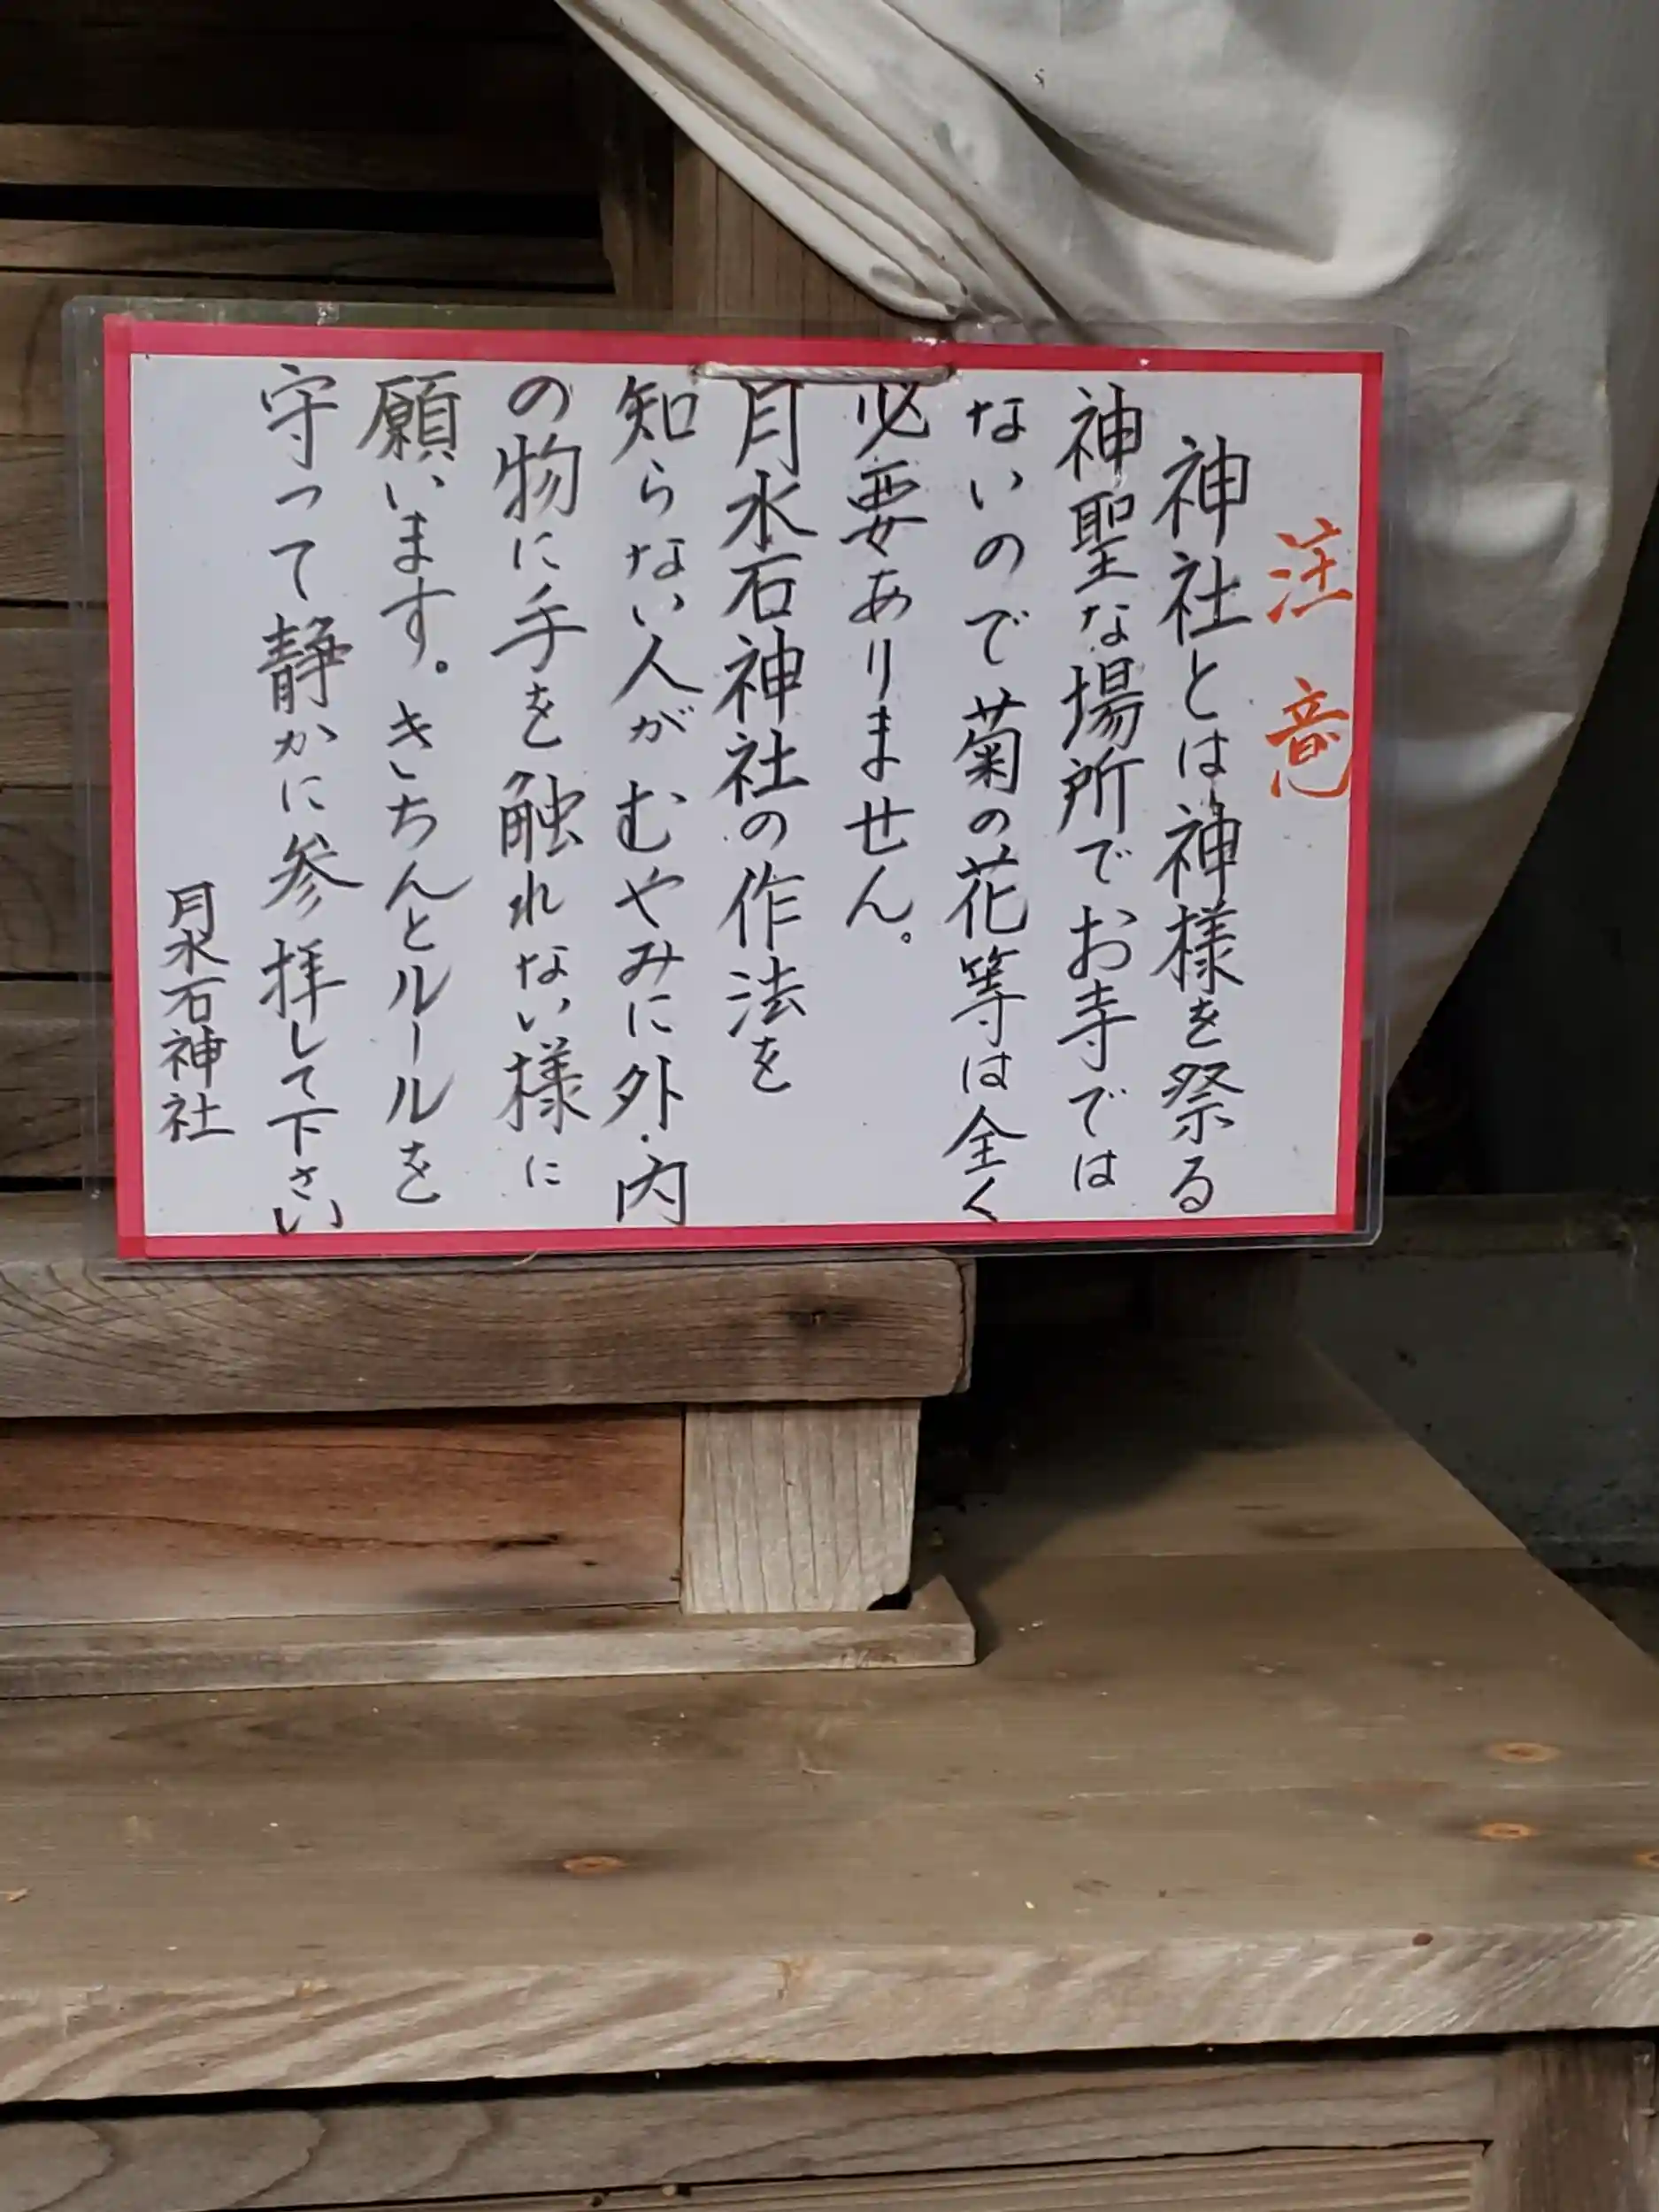 注意
神社とは神様を祭る
神聖な場所でお寺では
ないので菊の花等は全く
必要ありません。
月水石神社の作法を
知らない人がむやみに外・内
の物に手を触れない様に
願います。きちんとルールを
守って静かに参拝して下さい
月水石神社